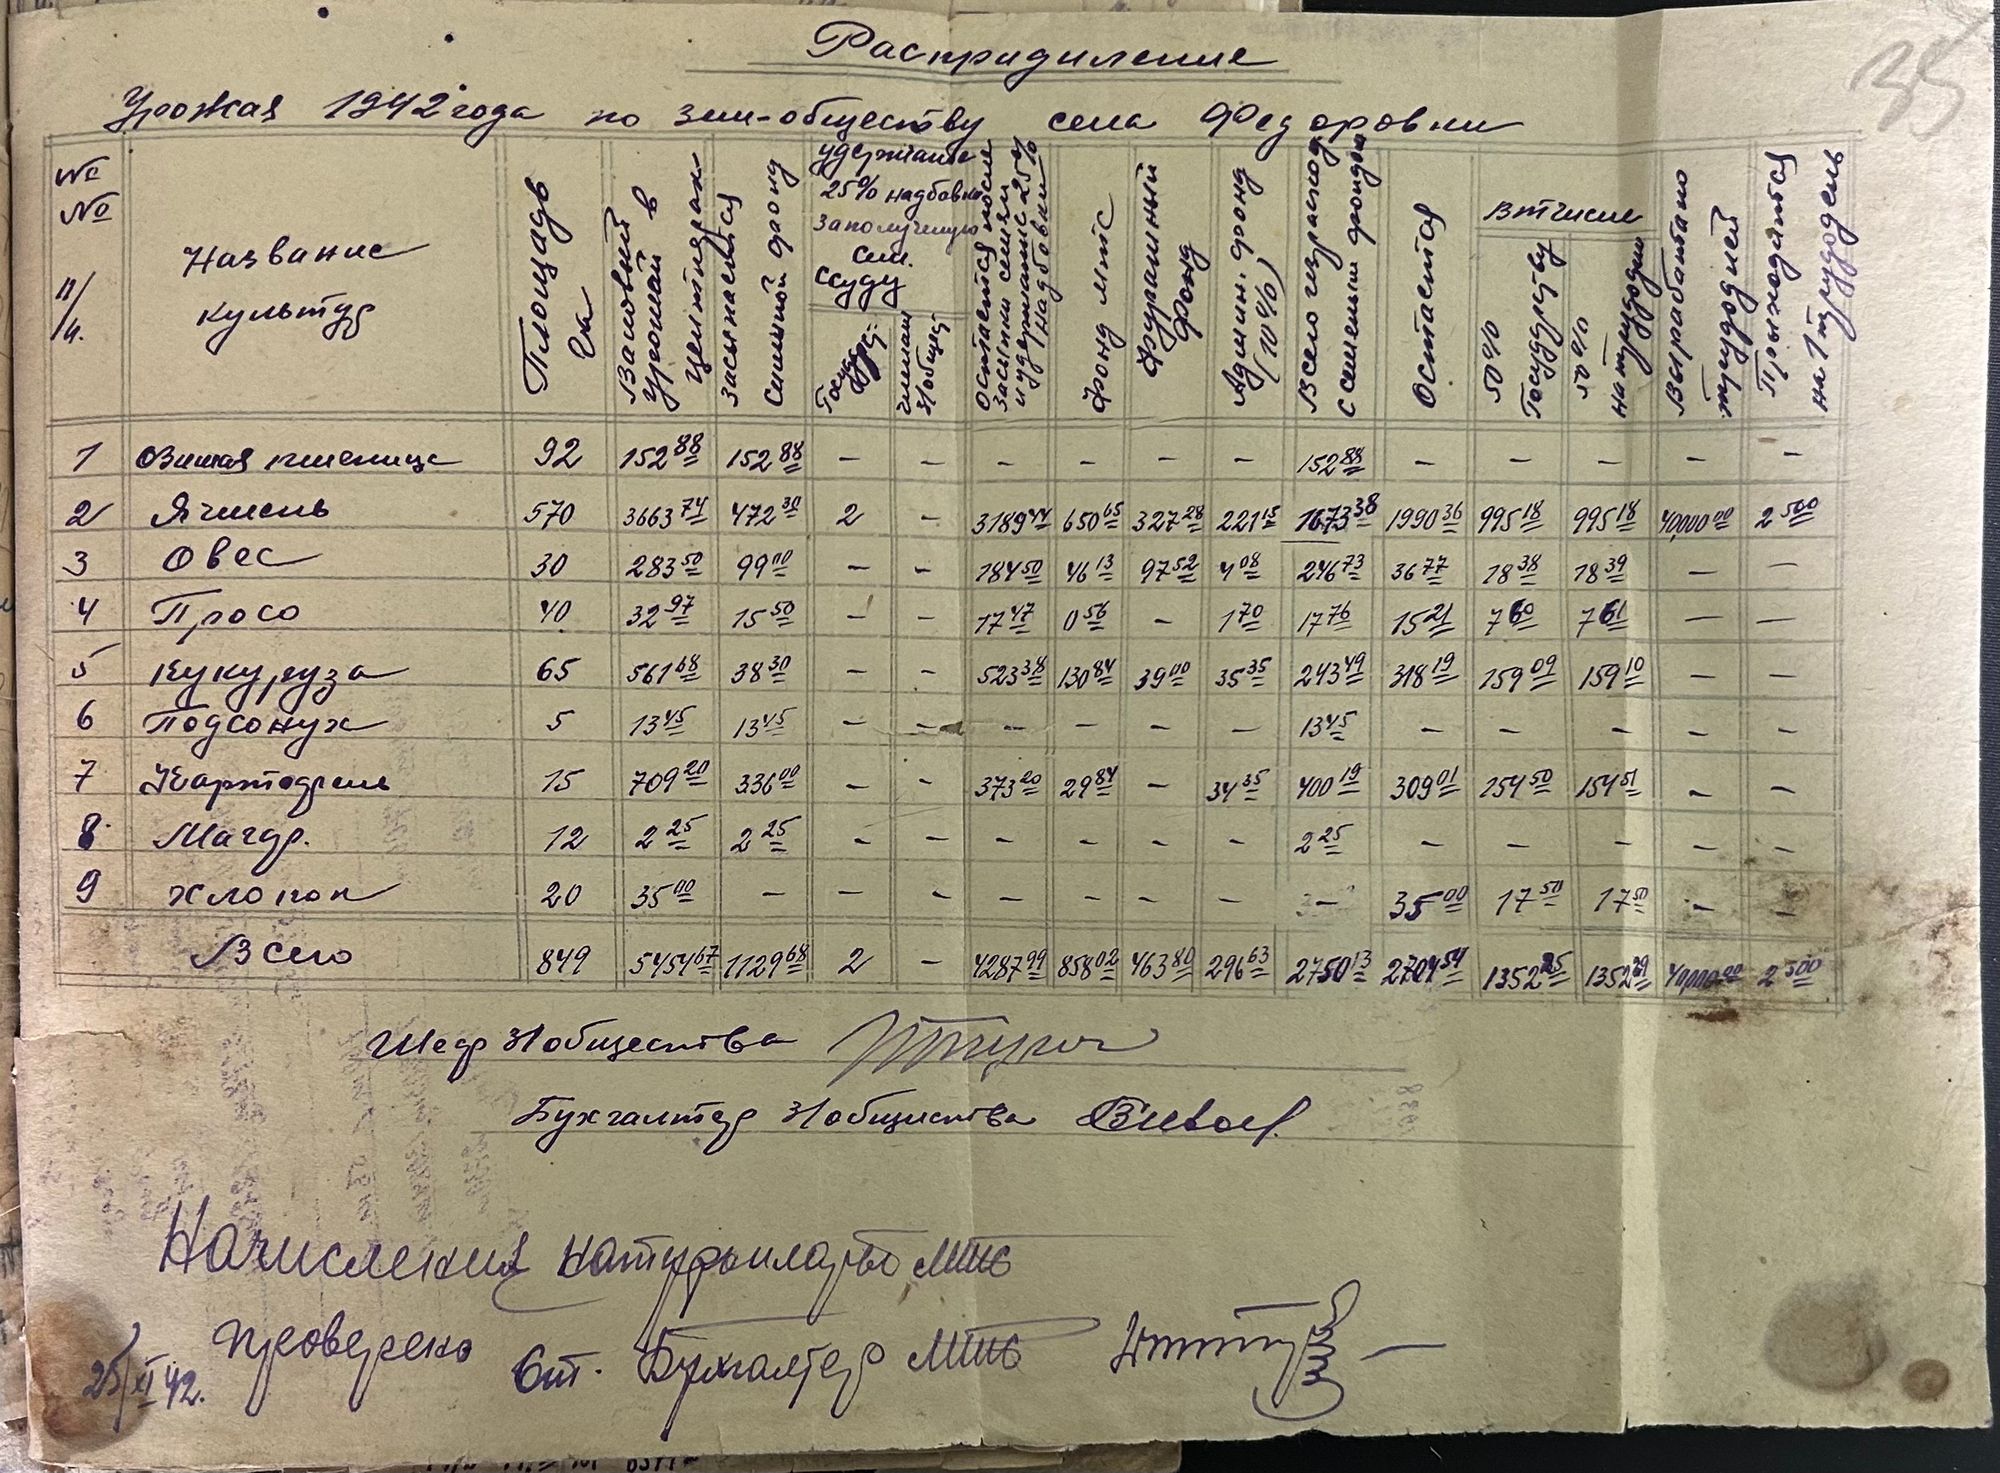 35
Распридиление
Урожая 1942 года по зем-обществу села Федоровки
№ № п/п.
Название культур
Площадь Га
Валовый урожай в центнерах
Засыпается семенной фонд
удержание 25% надбавки за полученую сем. ссуду
Государ.
членам з/общес.
Остается после засыпки семян и удержание 25% надбавки
Фонд мтс
Фуражный фонд
Админ. фонд (10%)
Всего израсход с семеным фондом
Остается
В т числе
50% Государству
50% на трудодни
Выработано трудодней
Приходится на 1 трудодень
1 Озимая пшеница 92 152 88 152 88 – – – – – – 152 88 – – – – –
2 Ячмень 570 3663 74 472 30 2 – 3189 44 650 65 327 28 221 15 1673 38 1990 36 995 18 995 18 40000 00 2 500
3 Овес 30 283 50 99 00 – – 184 50 46 13 97 52 4 08 246 73 36 77 18 38 18 39 – –
4 Просо 40 32 97 15 50 – – 17 47 0 56 – 1 70 17 76 15 21 7 60 7 61 – –
5 Кукуруза 65 561 68 38 30 – – 523 38 130 84 39 00 35 35 243 49 318 19 159 09 159 10 – –
6 Подсонух 5 13 45 13 45 – – – – – – 13 45 – – – – –
7 Картофель 15 709 20 336 00 – – 373 20 29 84 – 34 35 400 19 309 01 154 50 154 51 – –
8 Магар. 12 2 25 2 25 – – – – – – 2 25 – – – – –
9 Хлопок 20 35 00 – – – – – – – – 35 00 17 50 17 50 – –
Всего 849 5454 67 1129 68 2 – 4287 99 858 02 463 80 296 63 2750 13 2704 54 1352 25 1352 29 40000 00 2 500
Шеф З/общества
Бухгалтер З/общества
Начисления натуроплаты МТС
проверено Ст. Бухгалтер МТС
25/XI 42.